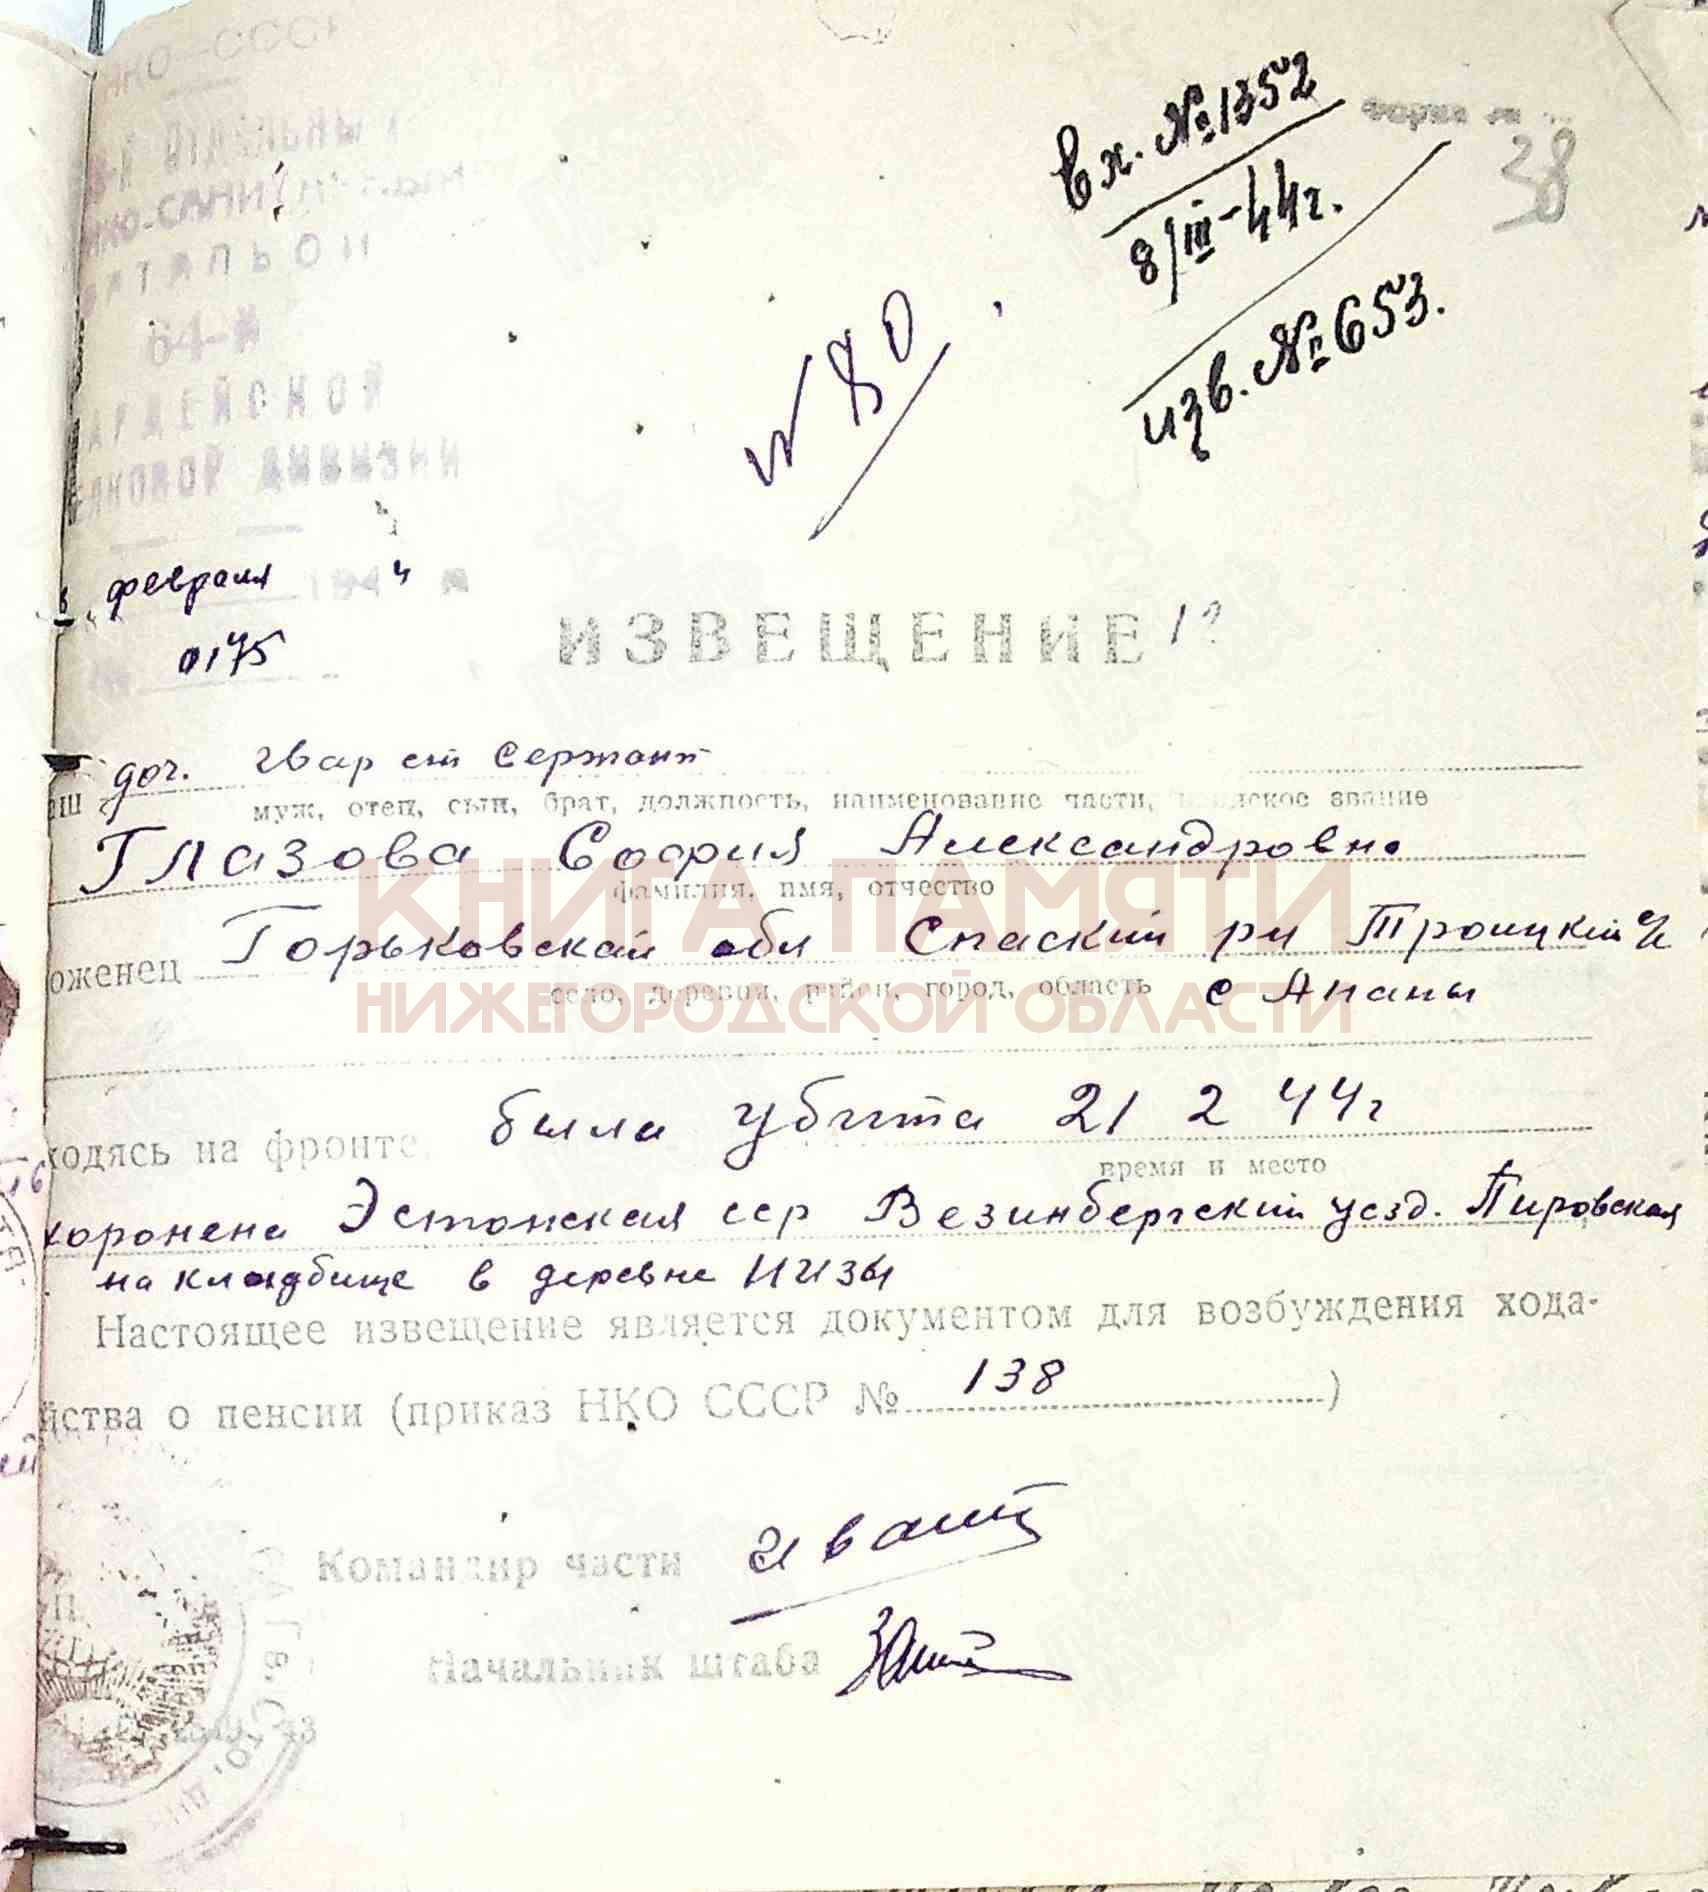 НКО-СССР
БАТАЛЬОН
64-й
ГВАРДЕЙСКОЙ
ДИВИЗИИ
Вх. № 1352
8/III-44г.
изв. № 653.
38
№ 80
февраля 1944
0175
ИЗВЕЩЕНИЕ
доч. гвар ст Сержант
муж, отец, сын, брат, должность, наименование части, звание
Глазова София Александровн.
фамилия, имя, отчество
оженец Горьковской обл Спаский рн Троицкий с/с
село, деревня, район, город, область с Апаны
КНИГА ПАМЯТИ
НИЖЕГОРОДСКОЙ ОБЛАСТИ
ходясь на фронте была убита 21 2 44г
время и место
хоронена Эстонская сср Везинбергский уезд. Пировская
на кладбище в деревне Низы
Настоящее извещение является документом для возбуждения хода-
йства о пенсии (приказ НКО СССР № 138)
Командир части
Начальник штаба